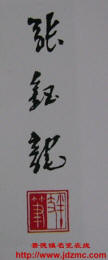 张钰龙
景德镇名瓷在线
www.jdzmc.com